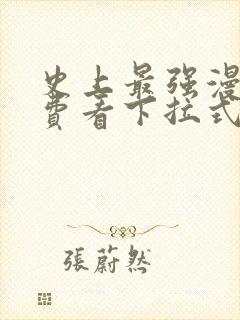 史上最强漫
费看下拉式
張蔚然